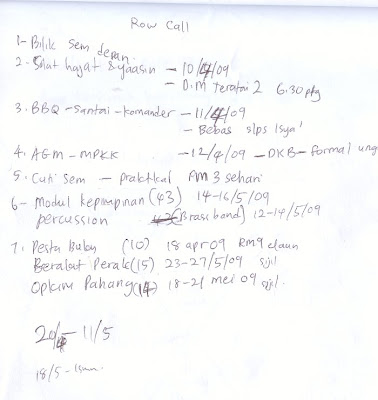 Row Call
1- Bilik sem depan.
2. Solat hajat & yaasin - 10/4/09
- D.M Teratai 2 6.30 ptg
3. BBQ - Santai - Komander - 11/4/09
- Bebas slps Isya'
4. AGM - MPKK - 12/4/09 - DKB - formal ung
5. Cuti Sem - Praktikal RM 3 sehari
6- Modul kepimpinan (43) 14-16/5/09
percussion (Brass band) 12-14/5/09
7. Pesta Buku (10) 18 apr 09 RM9 elaun
Berakat Perak (15) 23-27/5/09 sijil
Opkim Pahang (14) 18-21 mei 09 sijil.
20/4 - 11/5
18/5 -